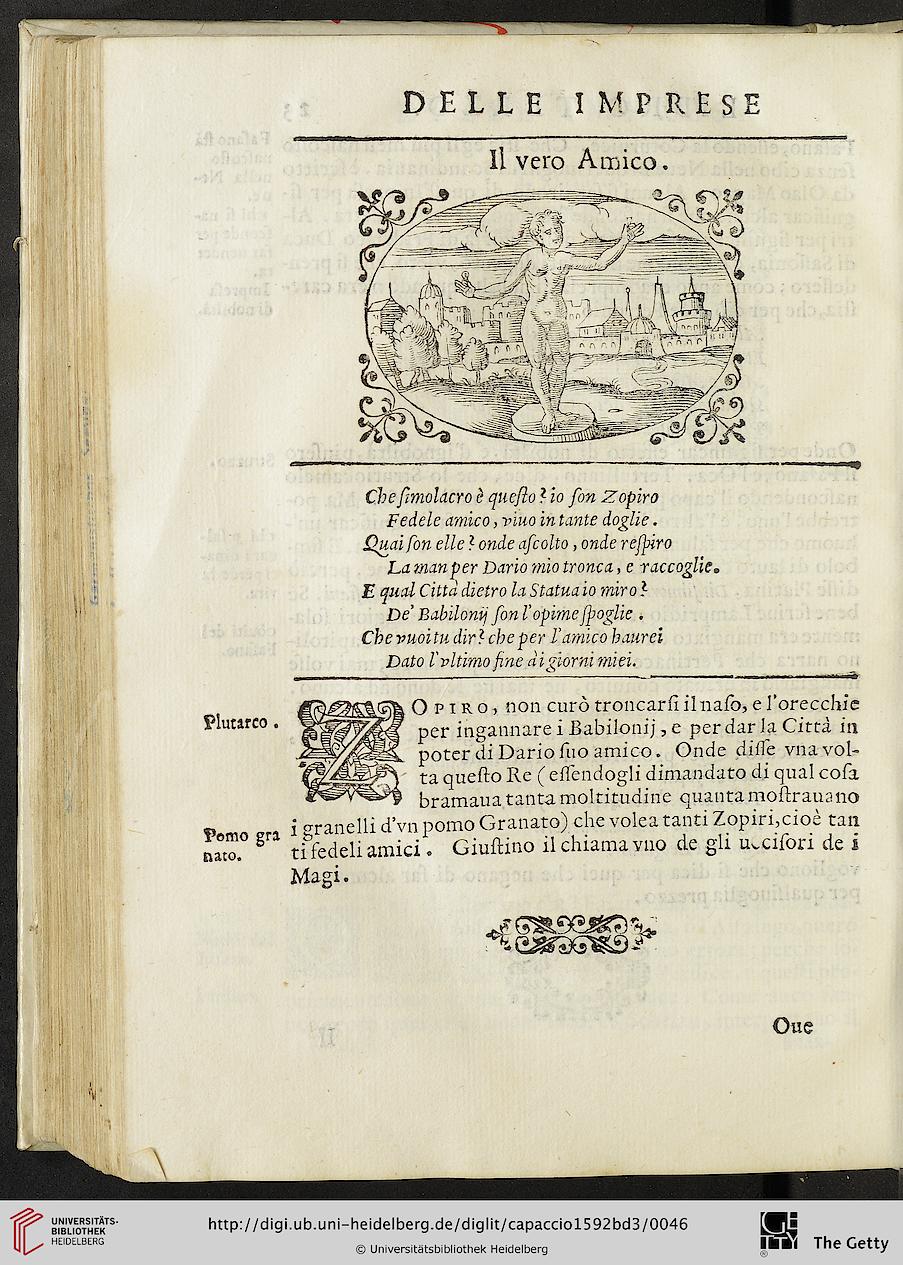 DELLE IMPRESE
Il vero Amico.
Che ſimolacro è queſto? io ſon Zopiro
Fedele amico, viuo in tante doglie.
Quai ſon elle? onde aſcolto, onde reſpiro
La man per Dario mio tronca, e raccoglie.
E qual Città dietro la Statua io miro?
De' Babilonij ſon l'opime ſpoglie.
Che vuoi tu dir? che per l'amico haurei
Dato l'vltimo fine à i giorni miei.
Plutarco.
ZOPIRO, non curò troncarſi il naſo, e l'orecchie
per ingannare i Babilonij, e per dar la Città in
poter di Dario ſuo amico. Onde diſſe vna vol-
ta queſto Re (eſſendogli dimandato di qual coſa
bramaua tanta moltitudine quanta moſtrauano
Pomo gra
nato.
i granelli d'vn pomo Granato) che volea tanti Zopiri, cioè tan
ti fedeli amici. Giuſtino il chiama vno de gli ucciſori de i
Magi.
Oue
UNIVERSITÄTS-
BIBLIOTHEK
HEIDELBERG
http://digi.ub.uni-heidelberg.de/diglit/capaccio1592bd3/0046
© Universitätsbibliothek Heidelberg
GETTY
®
The Getty